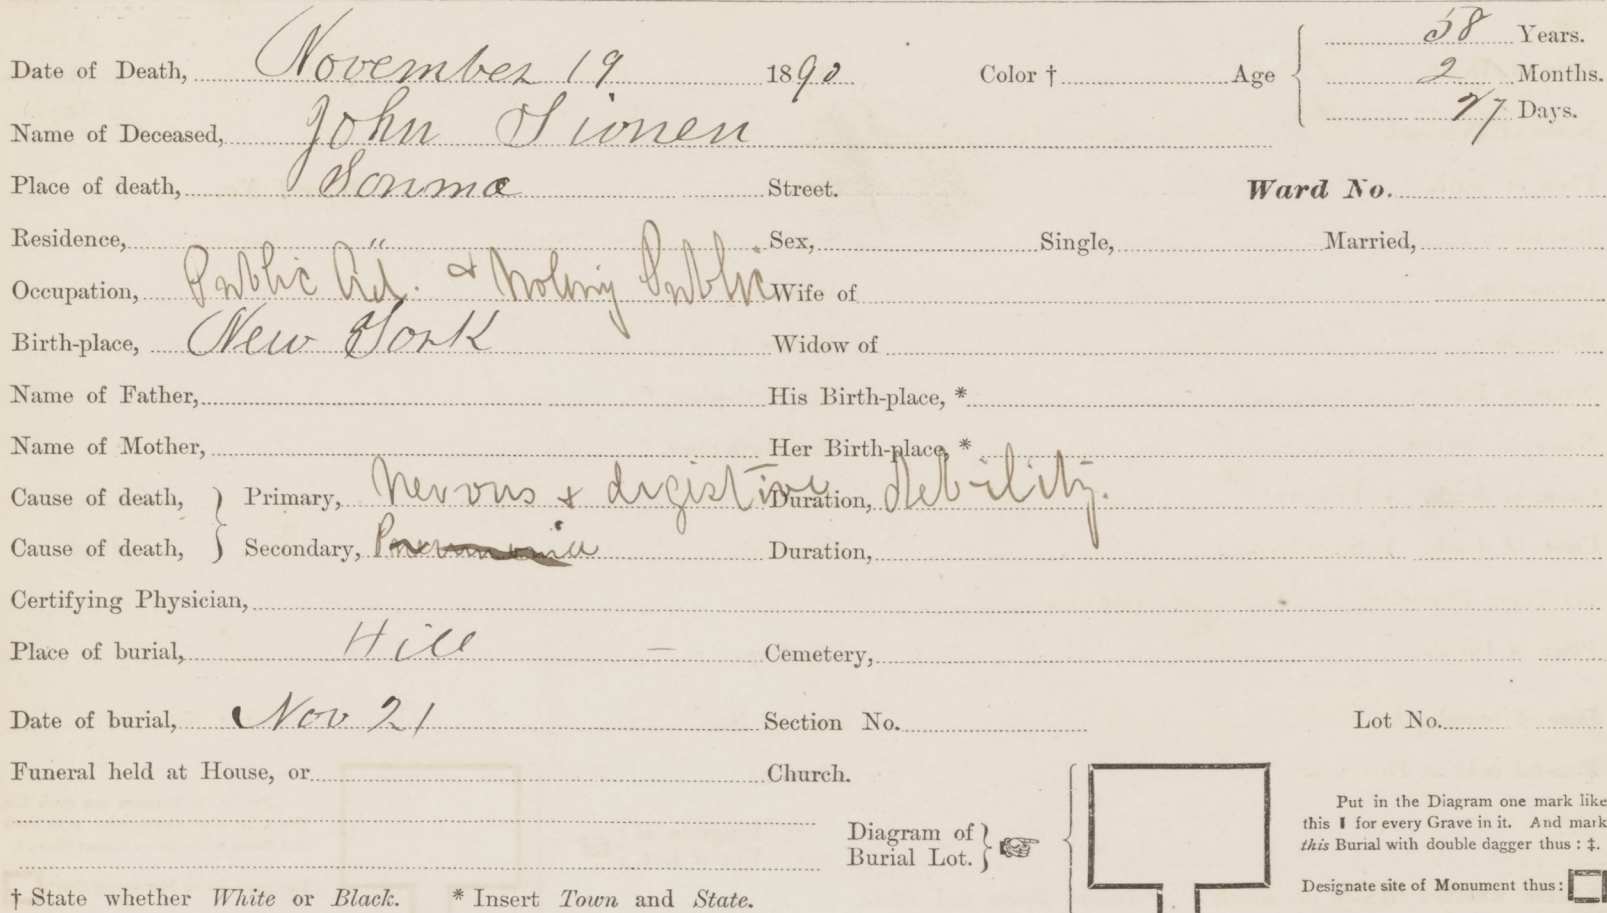 Date of Death, November 19 1890 Color † Age 58 Years.
2 Months.
27 Days.
Name of Deceased, John
Place of death, Street. Ward No.
Residence, " Sex, Single, Married,
Occupation, Public Ad. & Notary Public Wife of
Birth-place, New York Widow of
Name of Father, His Birth-place, *
Name of Mother, Her Birth-place, *
Cause of death, Primary, Nervous & digistive Duration, debility.
Cause of death, Secondary, Pneumonia Duration,
Certifying Physician,
Place of burial, Hill — Cemetery,
Date of burial, Nov 21 Section No. Lot No.
Funeral held at House, or Church.
Diagram of
Burial Lot.
Put in the Diagram one mark like
this ▮ for every Grave in it. And mark
this Burial with double dagger thus: ‡.
Designate site of Monument thus:
† State whether White or Black. * Insert Town and State.